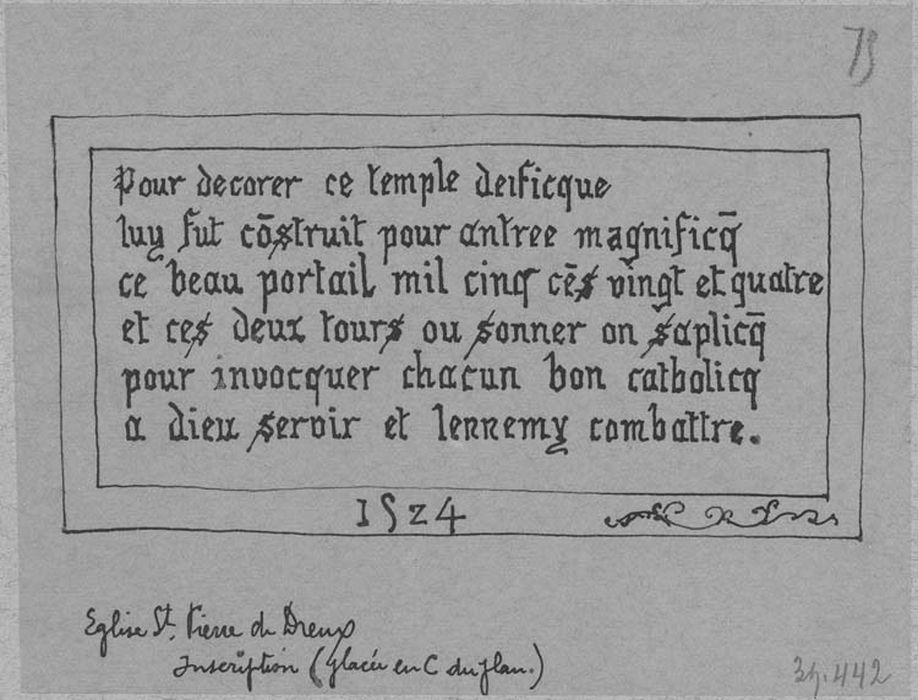 75
Pour decorer ce temple deificque
luy fut cōstruit pour antree magnificq̄
ce beau portail mil cinq cēs vingt et quatre
et ces deux tours ou sonner on s'aplicq̄
pour invocquer chacun bon catholicq
a dieu servir et lennemy combattre.
1524
Eglise St. Pierre de Dreux
Inscription (placée en C du plan.)
34.442